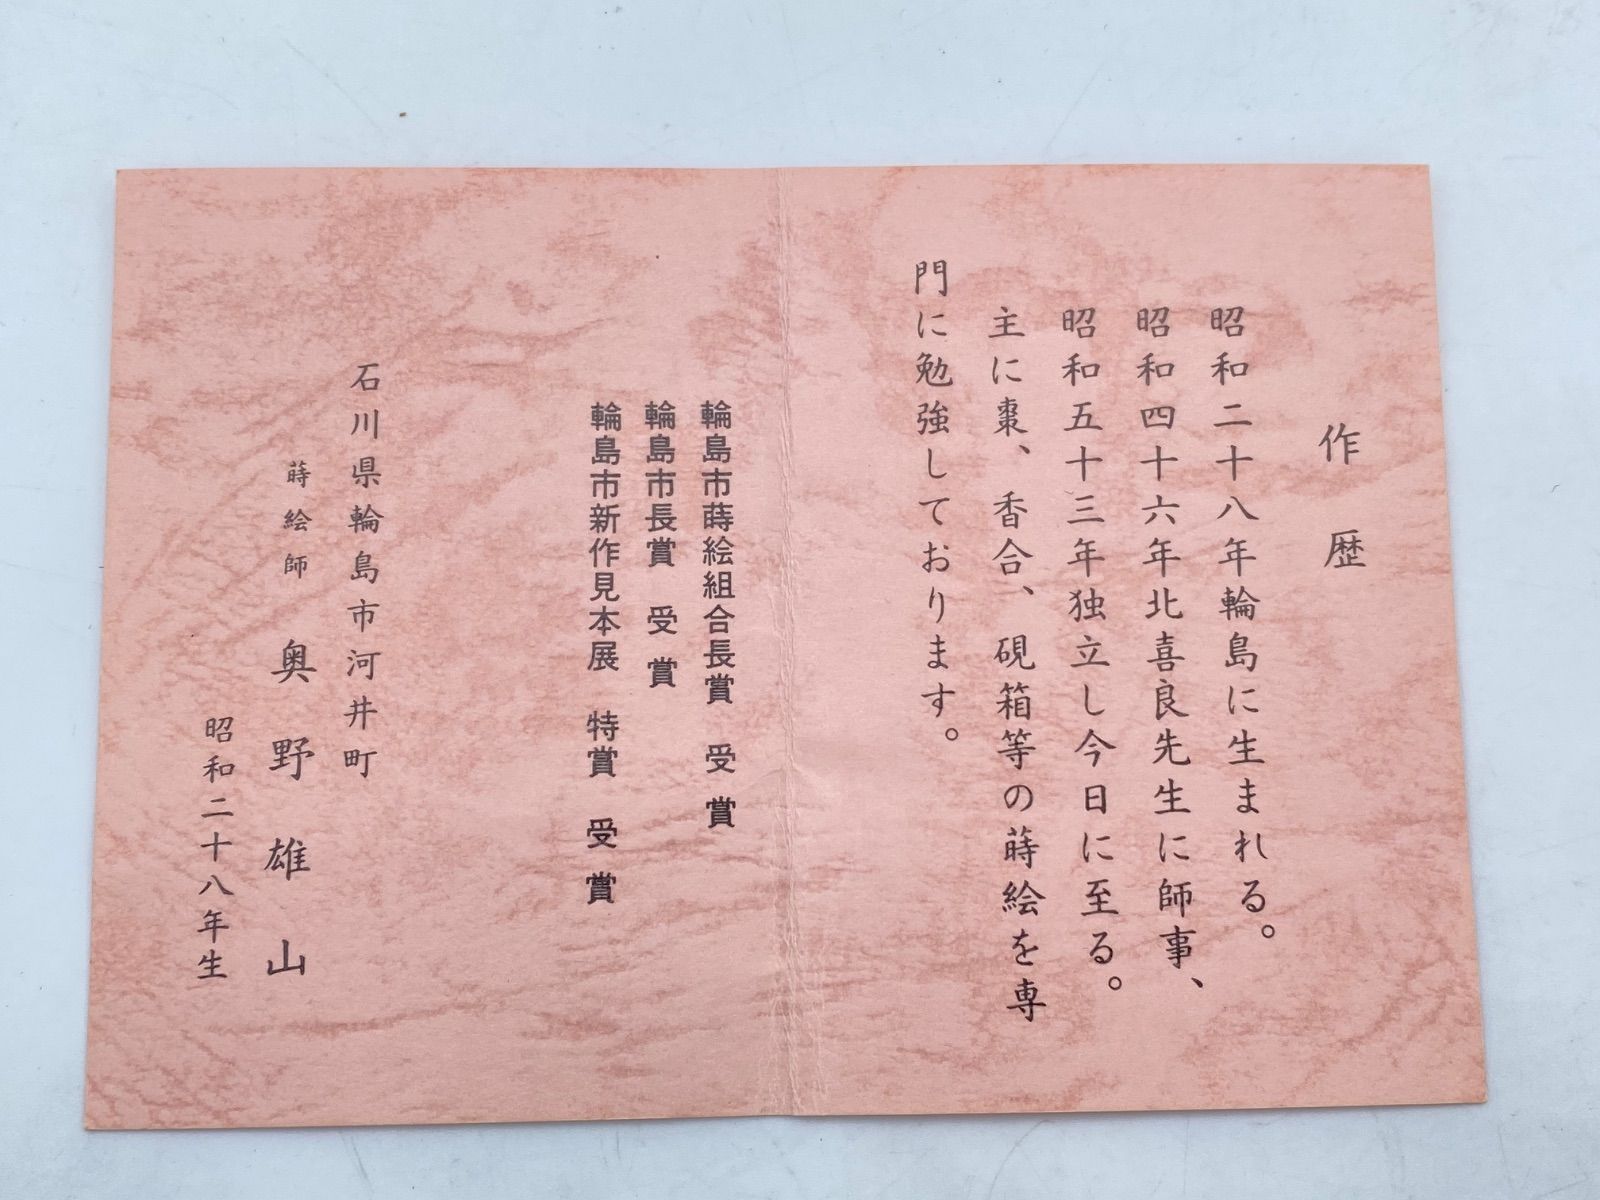 作歴
昭和二十八年輪島に生まれる。
昭和四十六年北喜良先生に師事、
昭和五十三年独立し今日に至る。
主に棗、香合、硯箱等の蒔絵を専
門に勉強しております。
輪島市蒔絵組合長賞 受賞
輪島市長賞 受賞
輪島市新作見本展 特賞 受賞
石川県輪島市河井町
蒔絵師 奥野雄山
昭和二十八年生